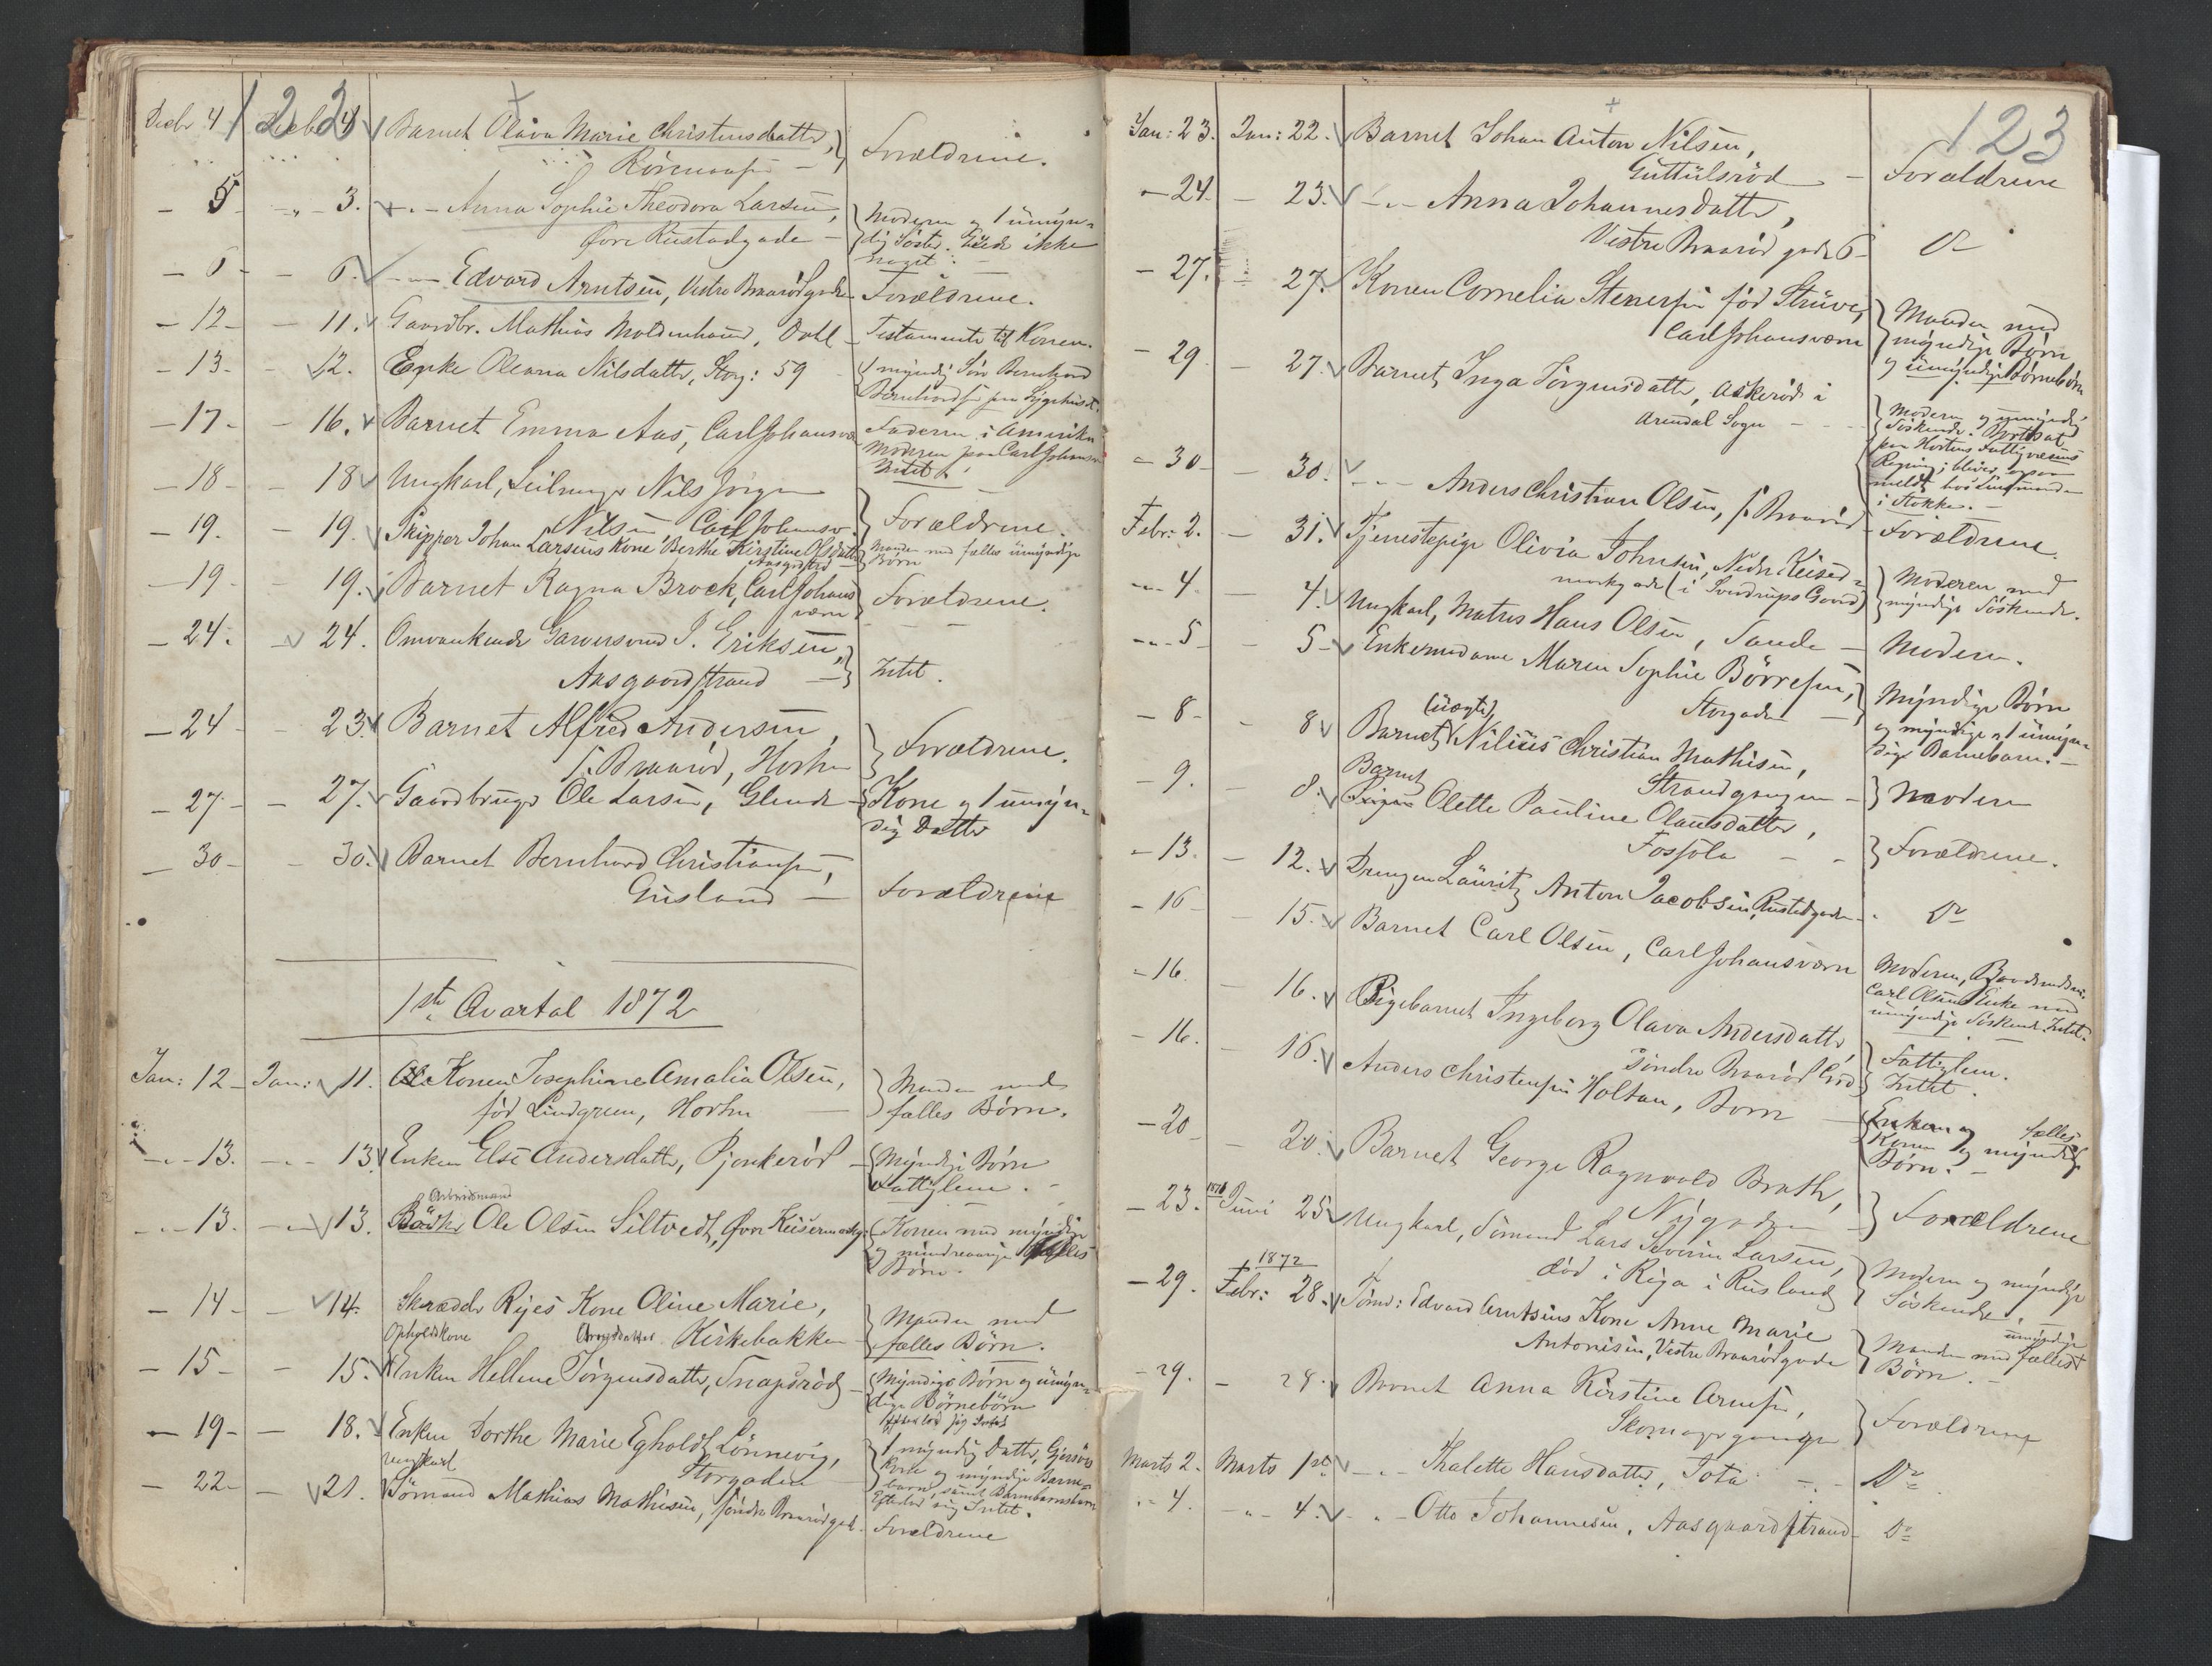 122
Decbr 4 Decbr 4 Barnet Olava Marie Christensdatter,
Forældrene.
- 5 - " - 3. - " - Anna Sophie Theodora Larsen,
Øvre Rustadgade -
Moderen og 1 umyn-
dig Søster. Eiede ikke
noget. -
- 6 - - 6. - " - Edvard Arntsen, Vestre Braarødgade - Forældrene.
- 12 - - 11. Gaardbr. Mathias Moldenhauer, Dahl - Testamente til Konen.
- 13 - - 12. Enke Oleana Nilsdatter, Storg: 59 -
1 myndig Søn Bernhard
Bernhardsen paa Sygehuset.
- 17 - - 16. Barnet Emma Aas, Carljohansværn
Faderen i Amerika
Moderen paa Carljohansværn
Intet
- 18 - - 18 Ungkarl, Seilmager Nils Jørgen
Nilsen Carljohansv. Forældrene.
- 19. - 19. Skipper Johan Larsens Kone Berthe Kirstine Olsdatter
Aasgrdstrd -
Manden med fælles umyndige
Børn
- 19 - - 19. Barnet Ragna Brock, Carljohans
værn
Forældrene.
- 24. - 24. Omvankende Garversvend J. Eriksen,
Aasgaardstrand - Intet.
- 24 - 23. Barnet Alfred Andersen,
S. Braarød, Horten
Forældrene.
- 27 - - 27. Gaardbruger Ole Larsen, Glende -
Kone og 1 umyn-
dig Datter
- 30 - - 30. Barnet Bernhard Christiansen,
Grisland - Forældrene
1ste Qvartal 1872
Jan: 12 - Jan: 11. Konen Josephine Amalia Olsen,
født Lindgren, Horten -
Manden med
fælles Børn.
- " - 13. - " - 13 Enken Else Andersdatter, Pjonkerød -
Myndige Børn
Fattiglem. -
- " - 13. - " - 13. Arbeidsmand
Bødker Ole Olsen Siltvedt, Øvre Keisermarkg:
Konen med myndige
og mindreaarige fælles
Børn.
- 14 - - 14. Skrædder Rejes Kone Oline Marie,
Arnesdatter Kirkebakken -
Manden med
fælles Børn.
Opholdskone
- 15 - - 15. Enken Hellene Jørgensdatter, Snapsrød -
Myndige Børn og umyn-
dige Børnebørn
Efterlod sig Intet
- 19 - - 18. Enken Dorthe Marie Egholdt Lønnevig,
Storgaden
1 myndig Datter,
Kone og myndige Barne-
børn, samt Barnebarnsbarn
Efterlod sig Intet.
Ungkarl
- 22 - - 21. Sømand Mathias Mathisen, søndre Braarødgd. - Forældrene
123
Jan: 23. Jan: 22. Barnet Johan Anton Nilsen,
Guttulsrød - Forældrene
- 24. - 23. - " - Anna Johannesdatter,
Vestre Braarød gade 6 - Do
- 27. - 27. Konen Cornelia Stenersen fød Strüve,
Carljohansværn
Manden med
myndige Børn
og umyndige Børnebørn
- 29 - 27. Barnet Inga Jørgensdatter, Askerød i
Arendal Sogn - -
Moderen og umyndige
Søskende. Bortsat
paa Hortens Fattigvæsens
Regning; bliver ogsaa
meldt hos Lensmanden
i Stokke. -
- 30 - - 30. - " - Anders Christian Olsen, S. Braarød - Forældrene.
Febr: 2. - 31. Tjenestepige Olivia Johnsen, Nedre Keiser-
markgade (i Sverdrups Gaard)
Moderen med
myndige Søskende.
- " - 4. - 4. Ungkarl, Matros Hans Olsen, Sande - Moderen.
- " - 5 - - 5 - Enkemadame Maren Sophie Børresen,
Storgaden -
Myndige Børn
og myndige og 1 umyn-
dige Barnebarn. -
- 8 - - 8 Barnet (uægte) Nilius Christian Mathisen,
Strandgangen - Moderen
- 9. - 8. Barnet
Pigen Olette Pauline Olausdatter,
Fossola - - Forældrene.
- 13. - 12. Drengen Lauritz Anton Jacobsen, Rustadgaden - Do
- 16 - - 15. Barnet Carl Olsen, Carljohansværn
Moderen,
Carl Olsens Enke med
umyndige Søskende. Intet.
- 16. - 16. Pigebarnet Ingeborg Olava Andersdatter,
Søndre Braarød Grd
Fattiglem.
Intet.
- 16. - 16. Anders Christensen Holtan, Borre -
Enken og
Konen og myndige fælles
Børn. -
- 20 - 20. Barnet George Ragnvald Brath,
Nygaden - Forældrene
- 23. 1871 Juni 25 Ungkarl, Sømand Lars Severin Larsen,
død i Riga i Rusland
Moderen og myndige
Søskende.
1872
- 29. Febr: 28. Tømd: Edvard Arntsens Kone Anne Marie
Antonisen, Vestre Braarødgade
Manden med fælles umyndige
Børn. -
- 29. - 28. Barnet Anna Kirstine Arnesen,
Skomagergangen Forældrene
Marts 2. Marts 1ste - " - Thalette Hansdatter, Tota - " - Do
" - 4. - " - 4. - " - Otto Johannesen, Aasgaardstrand - Do